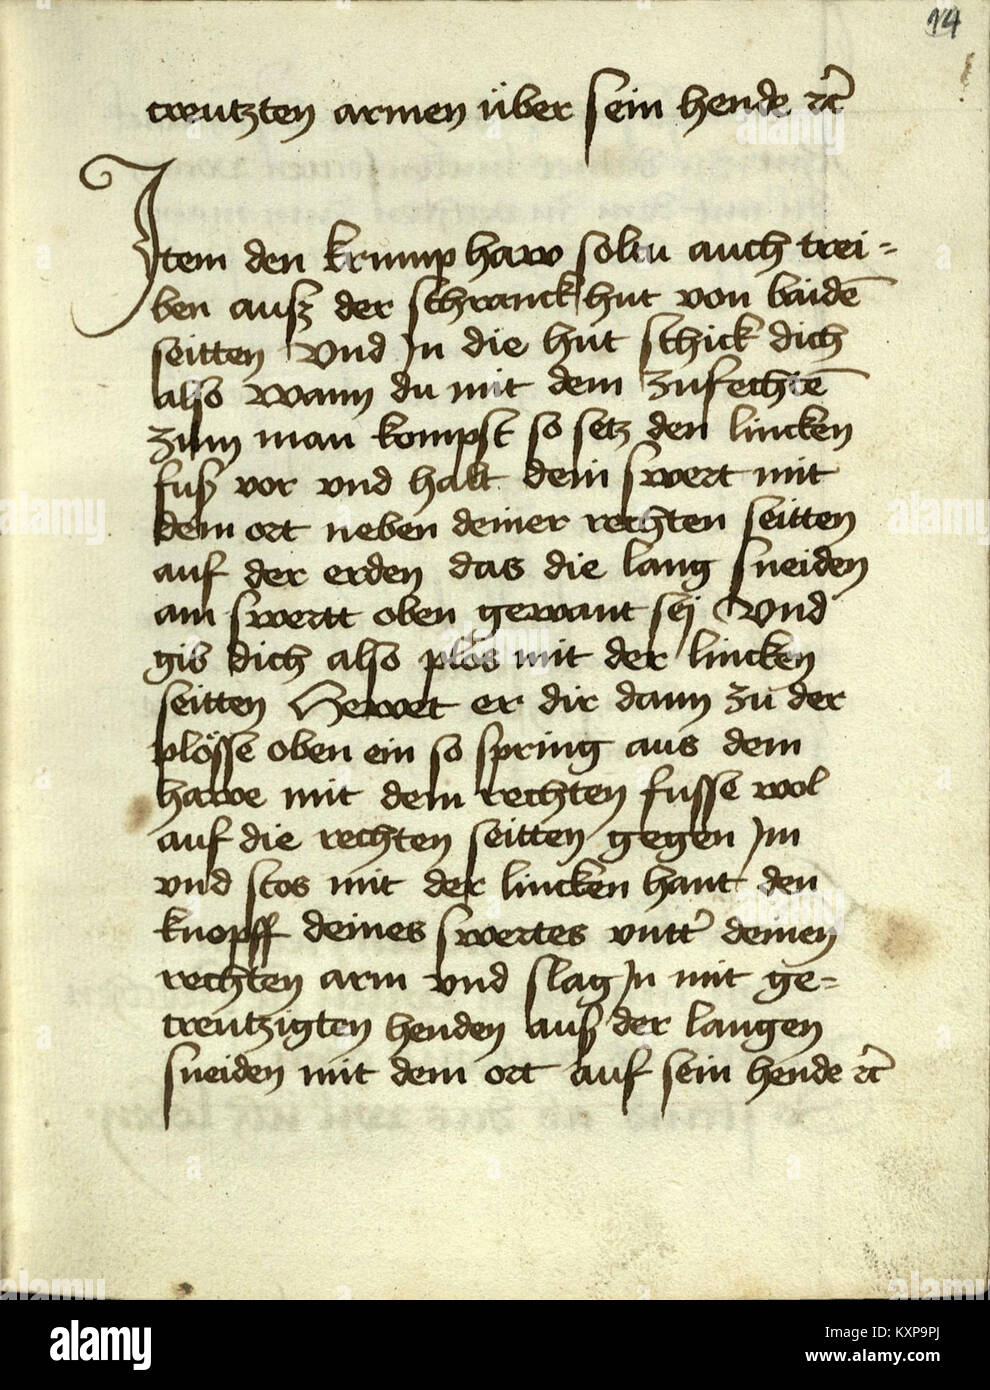 14
creutzten armen über sein hende ꝛc̃
Item den krump haw soltu auch trei=
ben ausz der schranckhut von baidē
seitten Vnd Jn die hut schick dich
also wann du mit dem zufechtē
zum man kompst so setz den lincken
fusz vor vnd halt dein swert mit
dem ort neben deiner rechten seitten
auf der erden das die lang sneiden
am swertt oben gewant sej Vnd
gib dich also plos mit der lincken
seitten Hewet er dir dann zu der
plösse oben ein so spring aus dem
hawe mit dem rechten fusse wol
auf die rechten seitten gegen Jm
vnd stos mit der lincken hant den
knopff deines swertes vntt' deinen
rechten arm vnd slag Jn mit ge=
creutzigten henden ausz der langen
sneiden mit dem ort auf sein hende ꝛc̃
alamy
Image ID: KXP9PJ
www.alamy.com